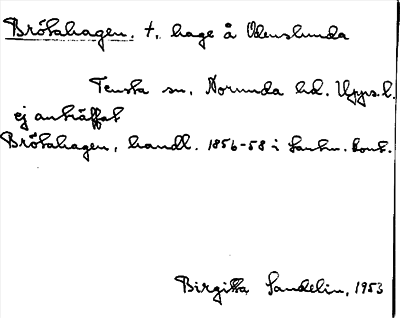 Brötahagen, t., hage å Odenslunda
Tensta sn, Norunda hd. Upps. l.
ej anträffat
Brötahagen, handl. 1856-58 i Lantm. kont.
Birgitta Sandelin, 1953